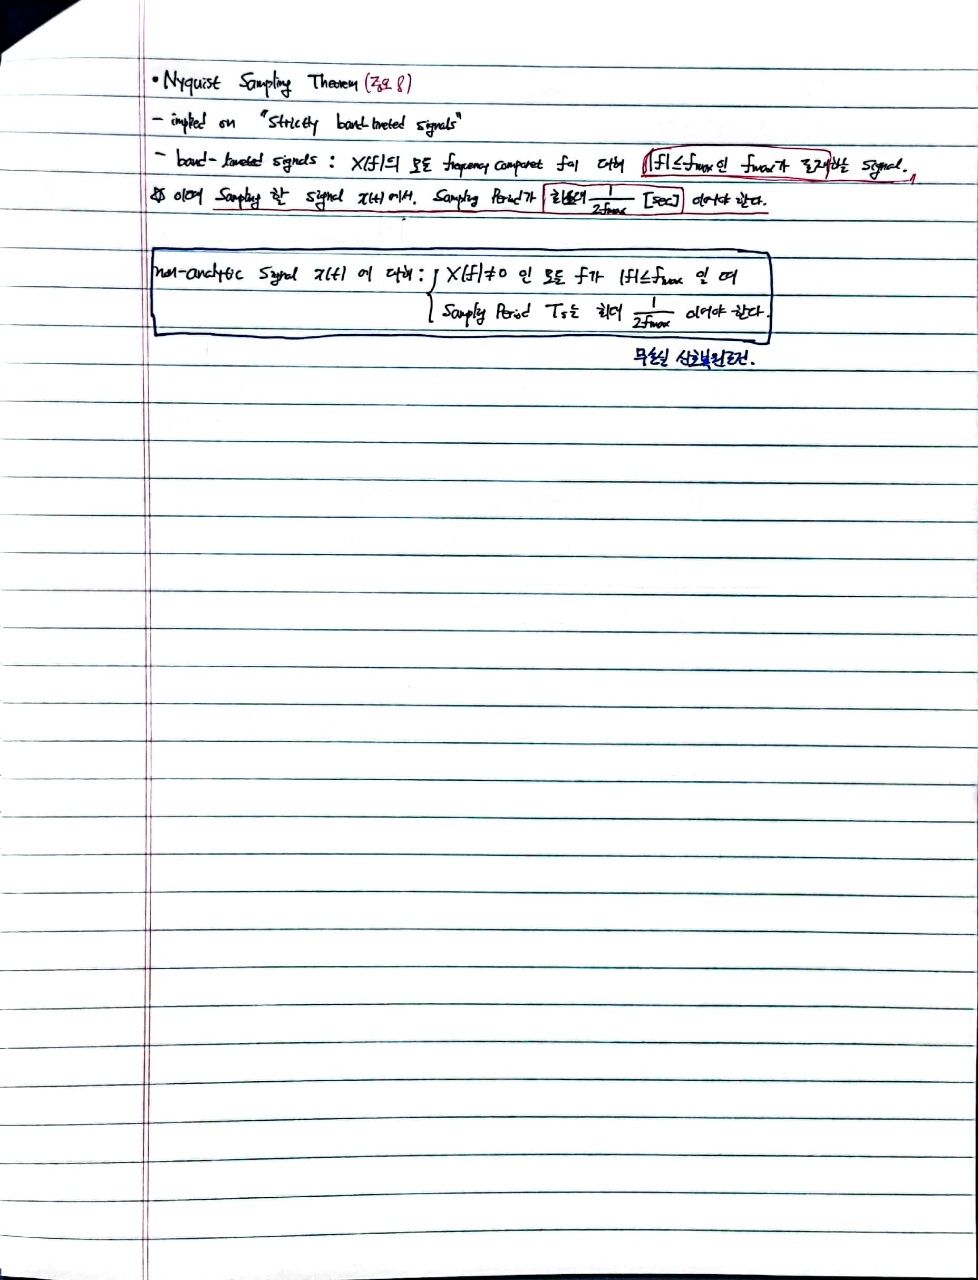 • Nyquist Sampling Theorem (중요 8)
- implied on "strictly band-limited signals"
- band-limited signals : X(f)의 모든 frequency component f에 대해 |f|≤fmax인 fmax가 존재하는 signal.
이때 Sampling 할 signal x(t)에서, Sampling Period가 1/2fmax [sec] 이어야 한다.
non-analytic signal x(t) 에 대해 : { X(f)≠0 인 모든 f가 |f|≤fmax 일 때
Sampling Period Ts는 최대 1/2fmax 이어야 한다.
무손실 신호복원조건.